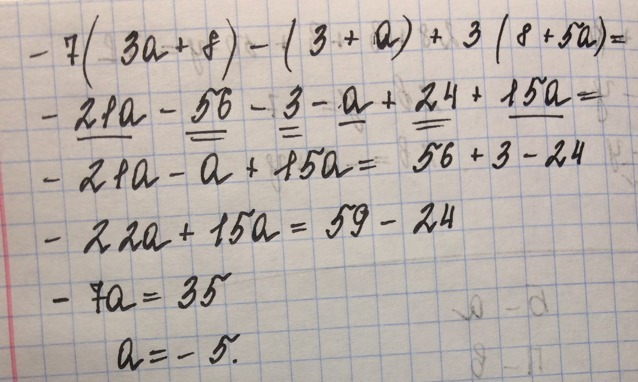 - 7( 3a + 8) - (3 + a) + 3 (8 + 5a) =
- 21a - 56 - 3 - a + 24 + 15a =
- 21a - a + 15a = 56 + 3 - 24
- 22a + 15a = 59 - 24
- 7a = 35
a = - 5.